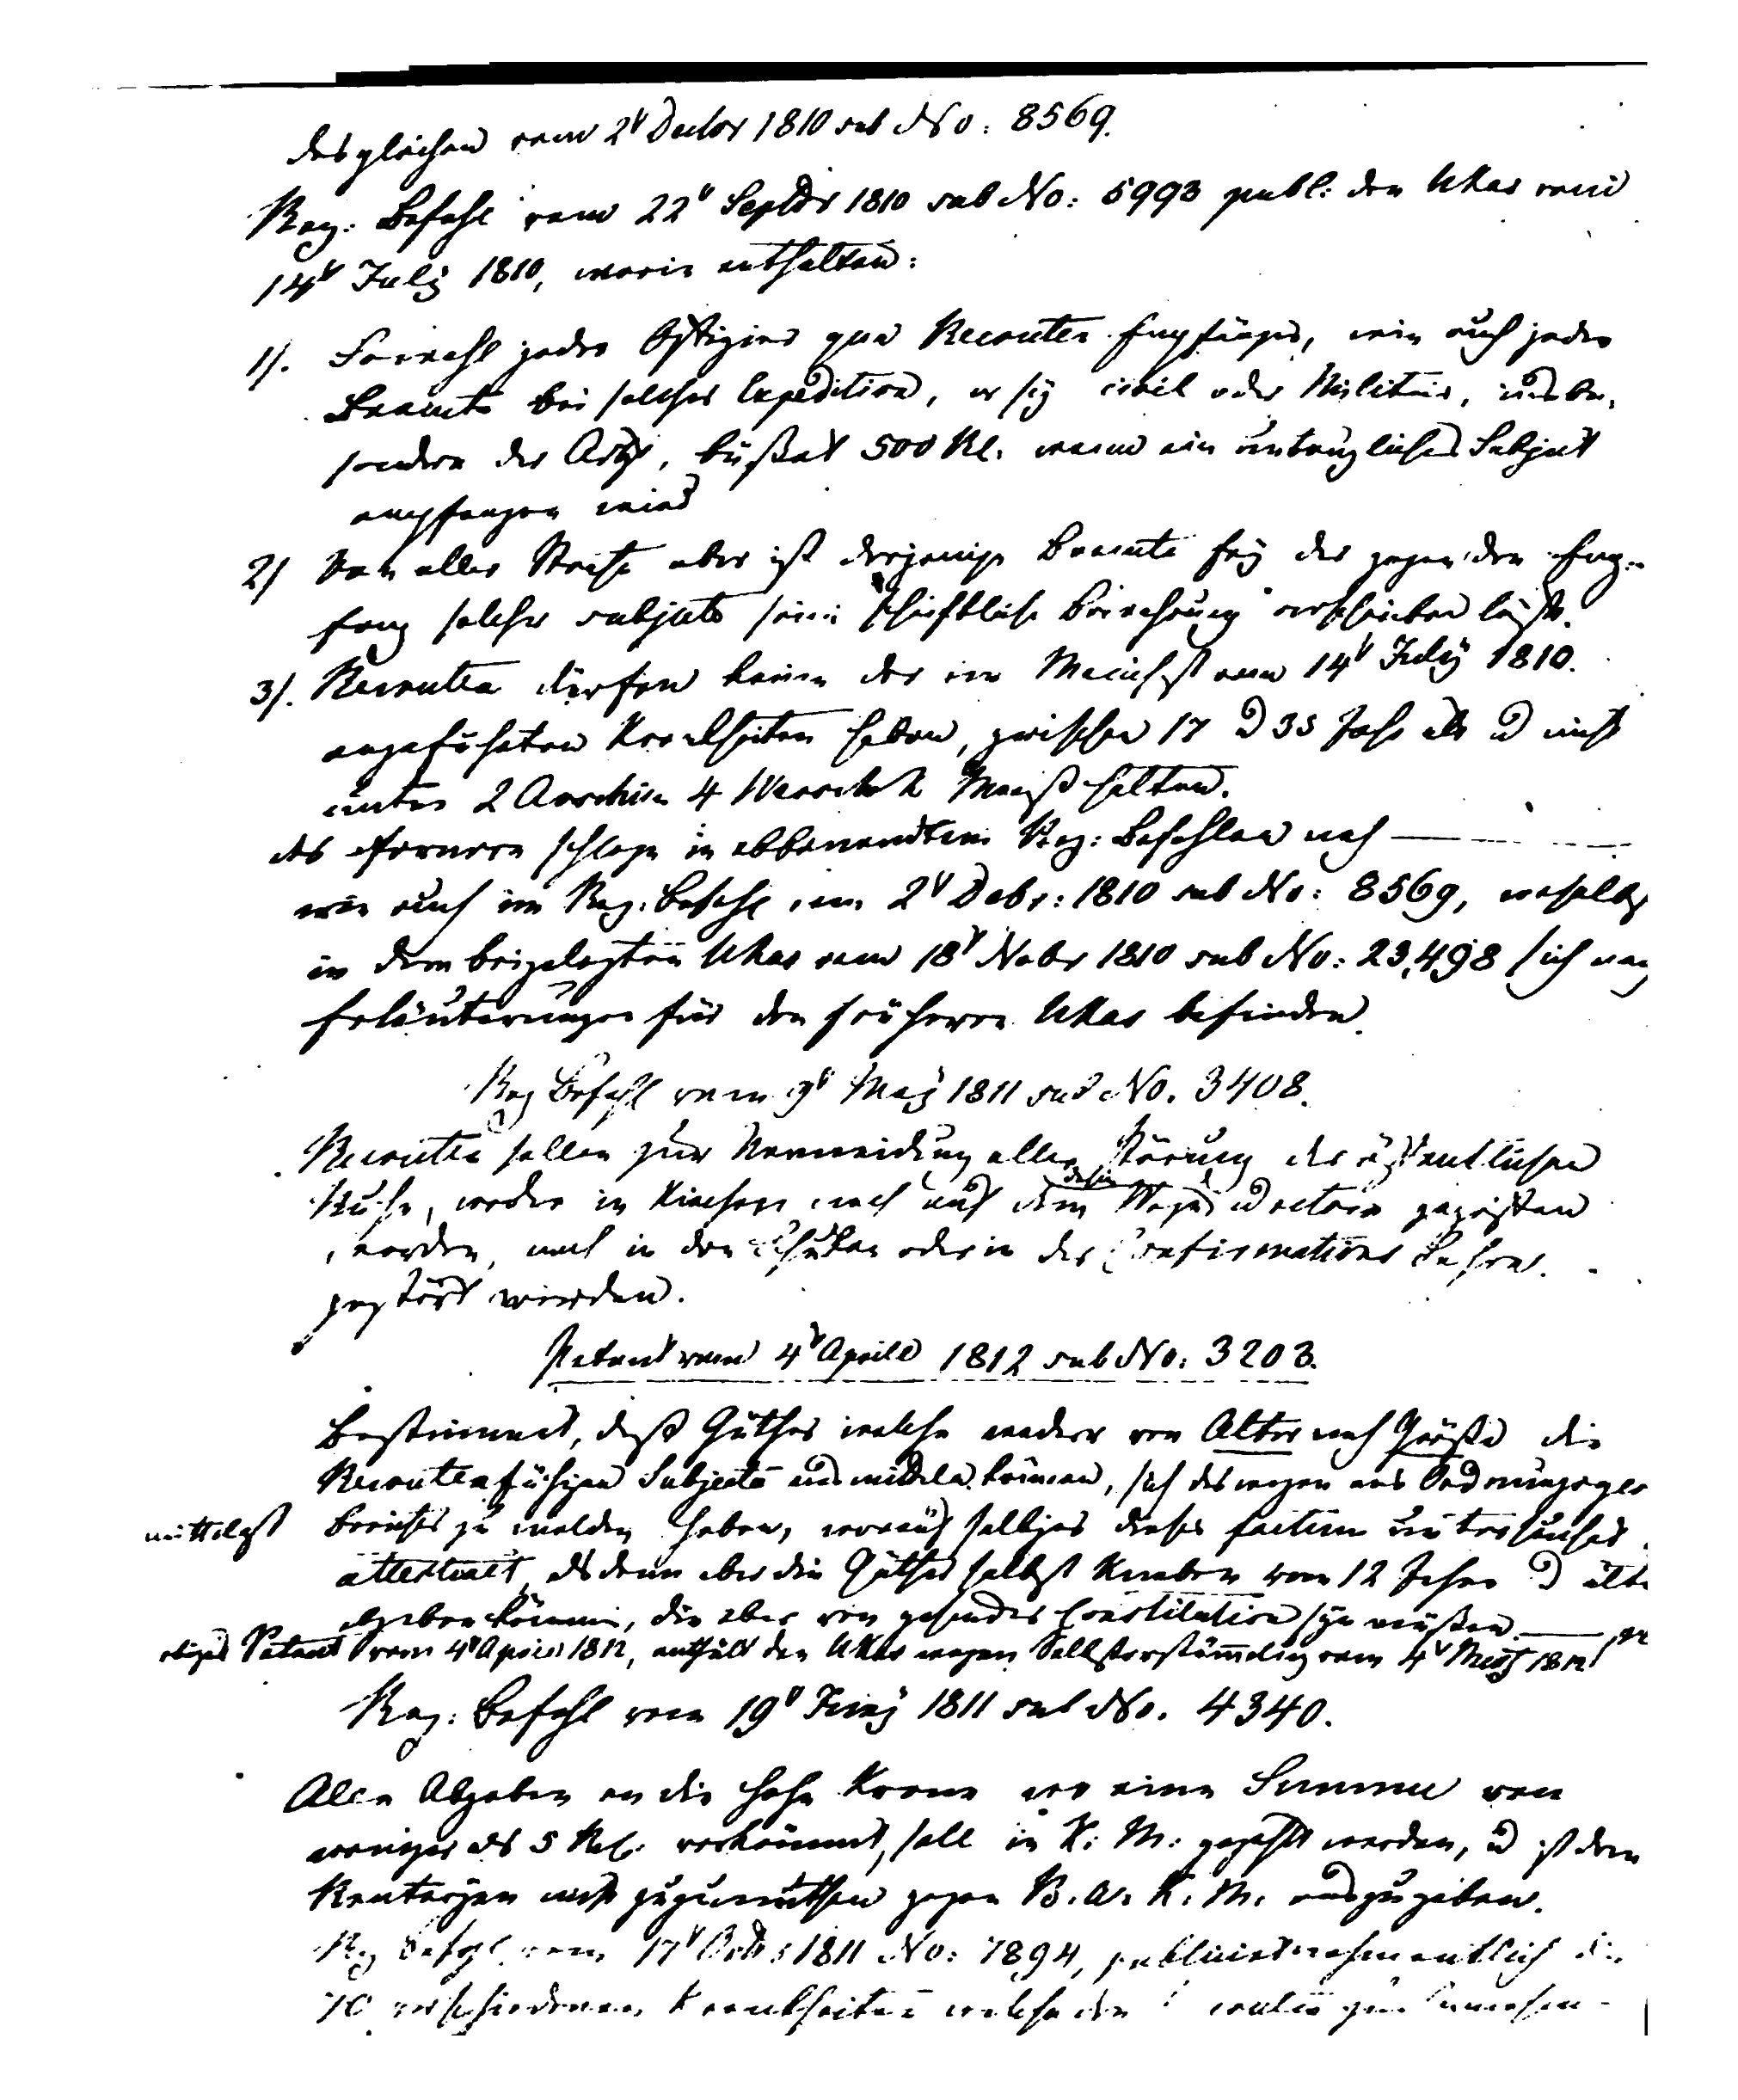 desgleichen vom 2t Decbr 1810 sub No: 8569.
Reg: Befehl vom 22t Septbr 1810 sub No: 5993 publ: den Ukas vom
14t July 1810, worin enthalten:
1). Sowohl jeder Offizier qua Recruten Empfänger, wie auch jeder
Beamte bei solcher Expedition, er sey civil oder Militair, insbe-
sondere der Arzt, büßet 500 Rl. wenn ein untaugliches Subject
empfangen wird
2) Von aller Strafe aber ist derjenige Beamte frey der gegen den Emp-
fang solcher subjecte seine schriftliche Bewahrung verschreiben läßt.
3). Recruten dürfen keine der im Manifest vom 14t July 1810.
angeführten Krankheiten haben, zwischen 17 u 35 Jahr alt u nicht
unter 2 Arschin 4 Werschok Maaß halten.
des fernern schlage in obbenandtem Reg: Befehlen nach
wie auch im Reg: Befehl vom 2t Debr: 1810 sub No: 8569, woselbst
in dem beigelegten Ukas vom 18t Nobr 1810 sub No: 23,498 sich noch
Erläuterungen für den früheren Ukas befinden.
Reg Befehl vom 9t May 1811 sub No. 3408.
Recruten sollen zur Vermeidung aller Störung der öffentlichen
Ruhe, weder in Kirchen noch auf dem Wege dahin u retour gegriffen
werden, noch in den Schulen oder in der Confirmations Lehre
gestört werden.
Patent vom 4t Aprill 1812 sub No: 3203.
Bestimmt, daß Güther welche weder von Alter noch Größe die
Recrutenfähigen Subjecte ausmitteln können, sich deswegen ans Ordnungsge-
richt zu melden haben, worauf selbiges dieses factum untersuchet
mittelst attestirt, als denn aber die Güther selbst Knaben von 12 Jahren u älter
abgeben können, die aber von gesunder Constitution seyn müßen.
obiges Patent vom 4t April 1812, enthält den Ukas wegen Selbstverstümmelung vom 4t 1812
Reg: Befehl vom 19t Juny 1811 sub No. 4340.
Alle Abgaben an die hohe Krone wo eine Summe von
weniger als 5 Rbl. vorkömmt, soll in K: M: gezahlt werden, u ist dem
Renteyen nicht zuzumuthen gegen B. A. K. M. auszugeben.
Reg Befehl vom 17t Octbr 1811 No: 7894, publicirt nahmentlich die
70 verschiedenen Krankheiten welche den